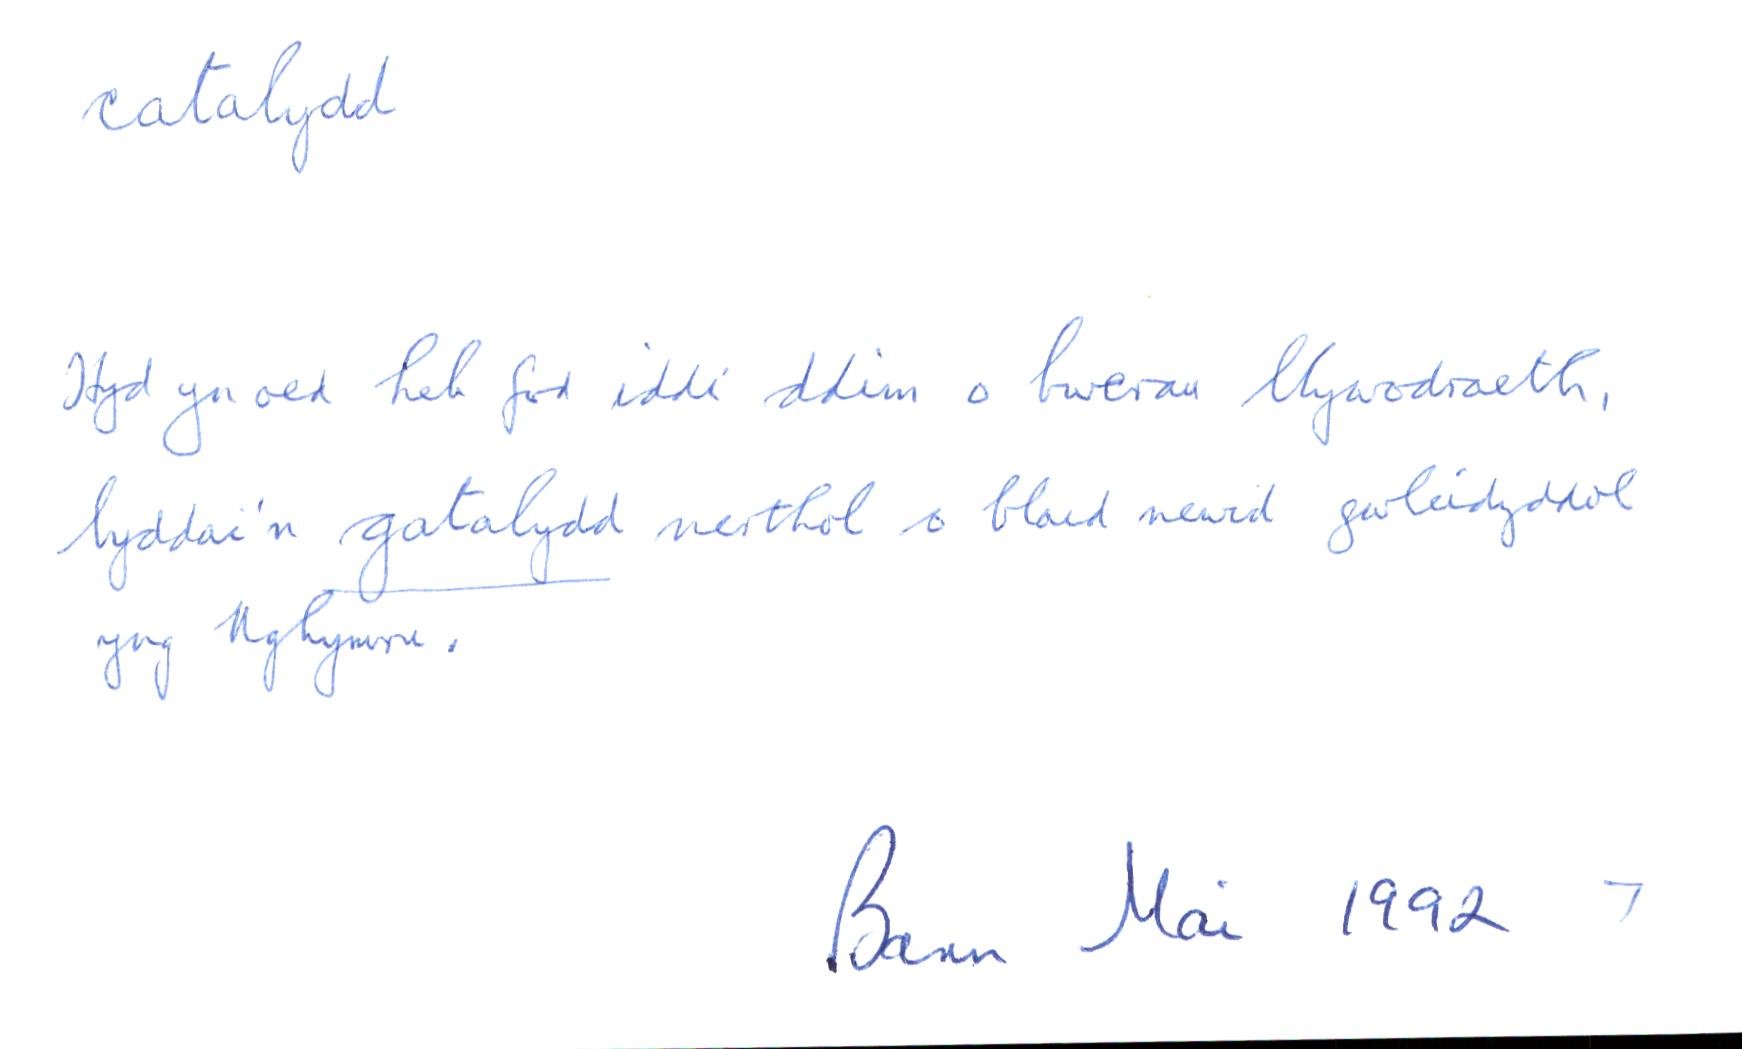 catalydd
Hyd yn oed heb fod iddi ddim o bwerau llywodraeth,
byddai'n gatalydd nerthol o blaid newid gwleidyddol
yng Nghymru.
Barn Mai 1992 7